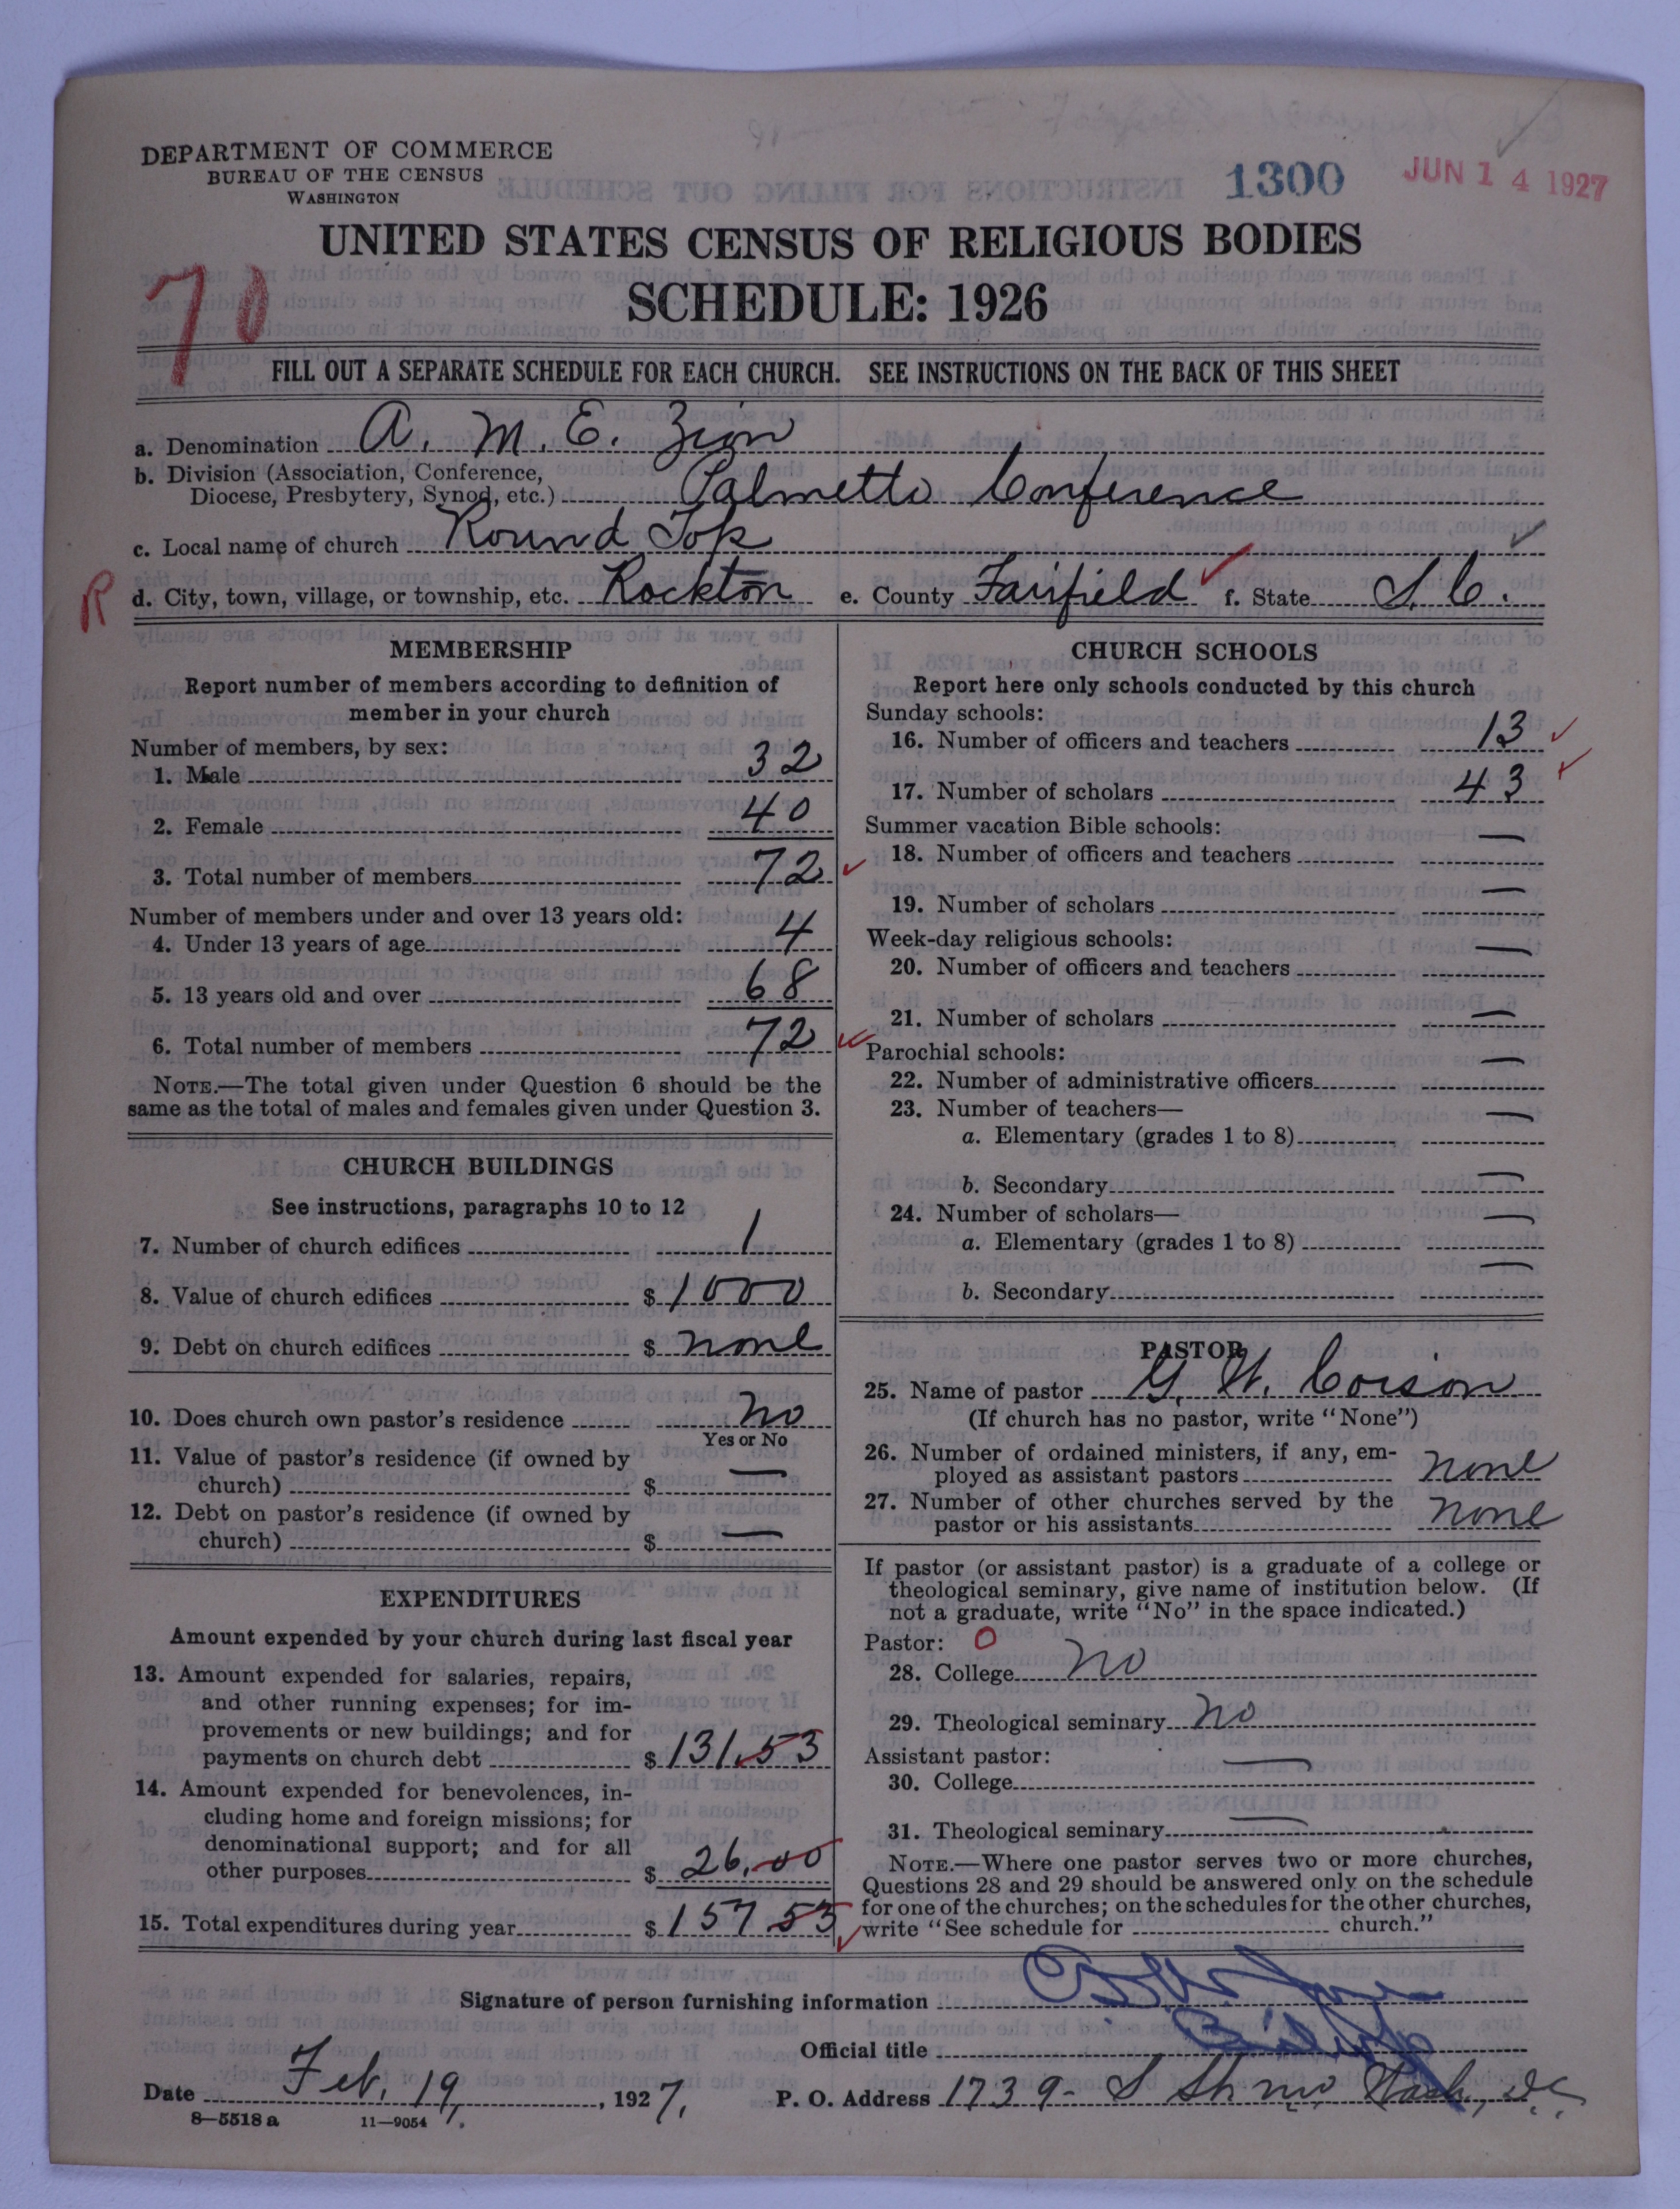 DEPARTMENT OF COMMERCE
BUREAU OF THE CENSUS
WASHINGTON
1300
JUN 14 1927
UNITED STATES CENSUS OF RELIGIOUS BODIES
SCHEDULE: 1926
70
FILL OUT A SEPARATE SCHEDULE FOR EACH CHURCH. SEE INSTRUCTIONS ON THE BACK OF THIS SHEET
a. Denomination A. M. E. Zion
b. Division (Association, Conference,
Diocese, Presbytery, Synod, etc.) Palmetto Conference
c. Local name of church Round Top
R d. City, town, village, or township, etc. Rockton e. County Fairfield f. State S. C.
MEMBERSHIP
Report number of members according to definition of
member in your church
Number of members, by sex:
1. Male 32
2. Female 40
3. Total number of members 72
Number of members under and over 13 years old:
4. Under 13 years of age 4
5. 13 years old and over 68
6. Total number of members 72
NOTE.—The total given under Question 6 should be the
same as the total of males and females given under Question 3.
CHURCH BUILDINGS
See instructions, paragraphs 10 to 12
7. Number of church edifices 1
8. Value of church edifices $ 1000
9. Debt on church edifices $ none
10. Does church own pastor's residence no
Yes or No
11. Value of pastor's residence (if owned by
church) $ —
12. Debt on pastor's residence (if owned by
church) $ —
EXPENDITURES
Amount expended by your church during last fiscal year
13. Amount expended for salaries, repairs,
and other running expenses; for im-
provements or new buildings; and for
payments on church debt $ 131.53
14. Amount expended for benevolences, in-
cluding home and foreign missions; for
denominational support; and for all
other purposes $ 26.00
15. Total expenditures during year $ 157.53
CHURCH SCHOOLS
Report here only schools conducted by this church
Sunday schools:
16. Number of officers and teachers 13
17. Number of scholars 43
Summer vacation Bible schools:
18. Number of officers and teachers —
19. Number of scholars —
Week-day religious schools:
20. Number of officers and teachers —
21. Number of scholars —
Parochial schools:
22. Number of administrative officers —
23. Number of teachers—
a. Elementary (grades 1 to 8) —
b. Secondary —
24. Number of scholars—
a. Elementary (grades 1 to 8) —
b. Secondary —
PASTOR
25. Name of pastor G. W. Corson
(If church has no pastor, write "None")
26. Number of ordained ministers, if any, em-
ployed as assistant pastors none
27. Number of other churches served by the
pastor or his assistants none
If pastor (or assistant pastor) is a graduate of a college or
theological seminary, give name of institution below. (If
not a graduate, write "No" in the space indicated.)
Pastor: 0
28. College no
29. Theological seminary no
Assistant pastor:
30. College —
31. Theological seminary —
NOTE.—Where one pastor serves two or more churches,
Questions 28 and 29 should be answered only on the schedule
for one of the churches; on the schedules for the other churches,
write "See schedule for church."
Signature of person furnishing information
Official title Bishop
Date Feb. 19, 1927. P. O. Address 1739- S St. nw, Wash., D.C.
8—5518 a 11—9054